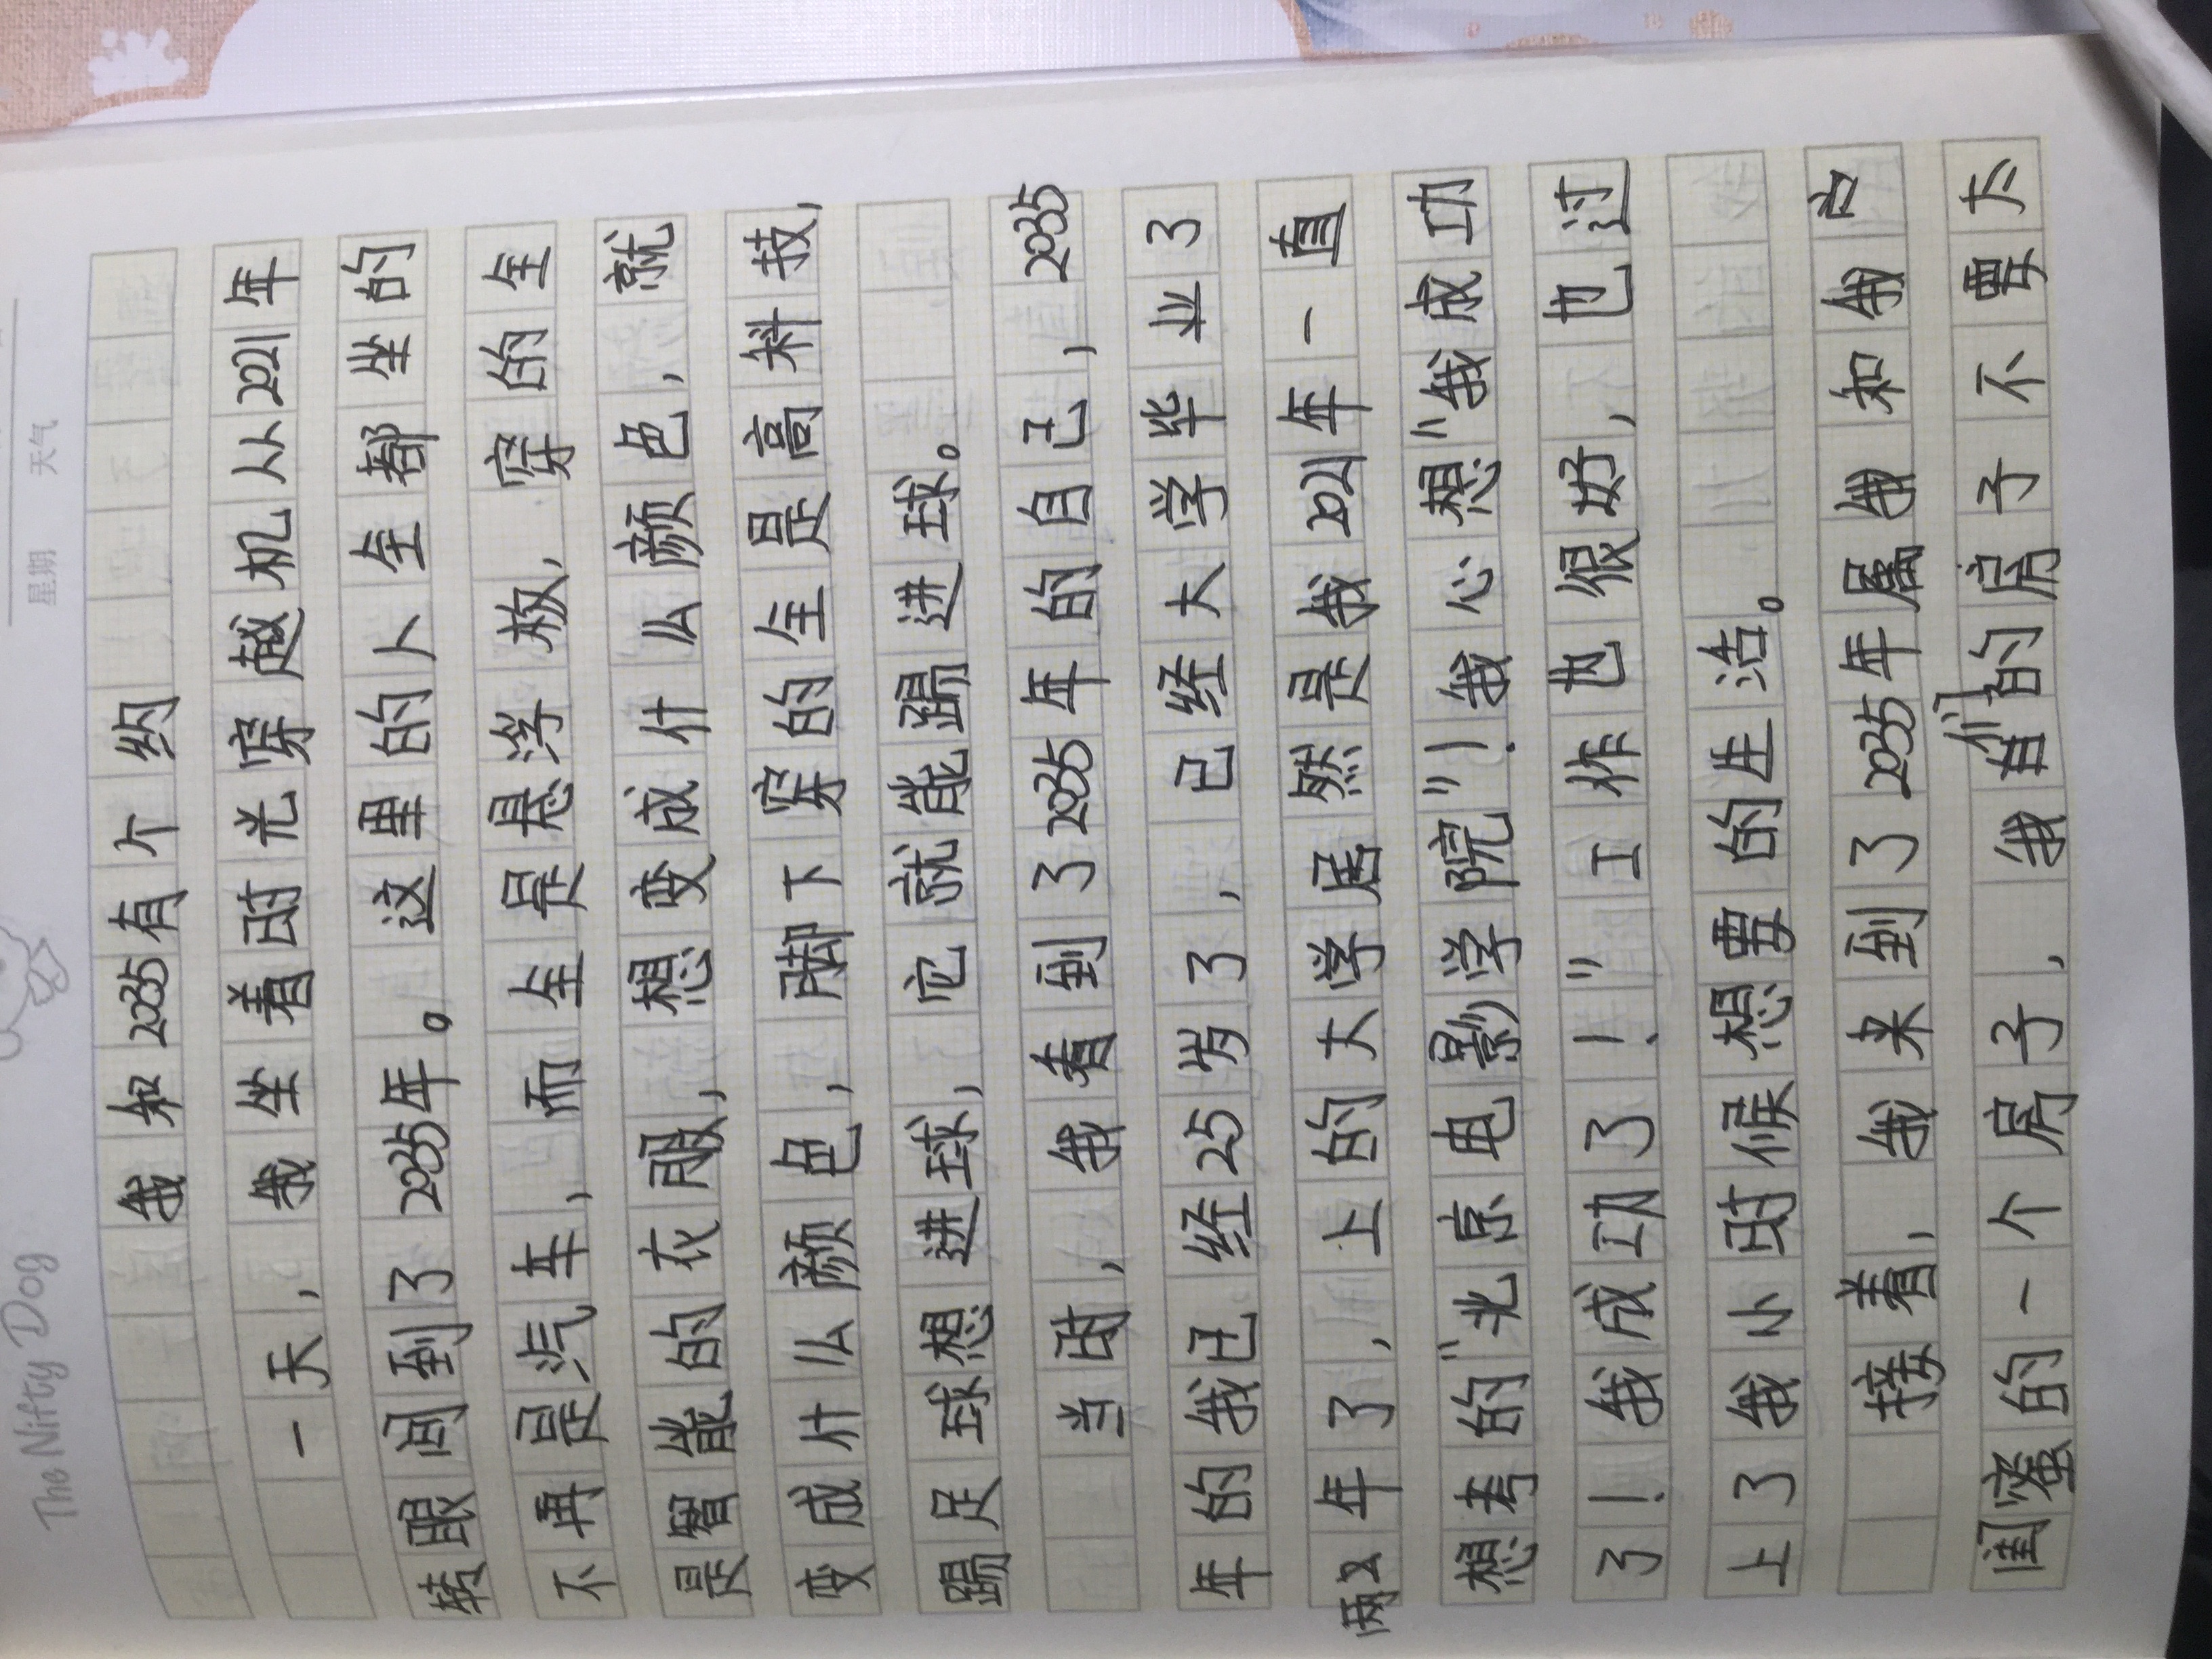 The Nifty Dog
星期 天气
我和2035有个约
一天，我坐着时光穿越机从2021年
转眼间到了2035年。这里的人全都坐的
不再是汽车，而全是悬浮板，穿的全
是智能的衣服，想变成什么颜色，就
变成什么颜色，脚下穿的全是高科技，
踢足球想进球，它就能踢进球。
当时，我看到了2035年的自己，2035
年的我已经25岁了，已经大学毕业3
两年了，上的大学居然是我2021年一直
想考的“北京电影学院”！我心想“我成功
了！我成功了！”工作也很好，也过
上了我小时候想要的生活。
接着，我来到了2035年属我和我
闺蜜的一个房子，我们的房子不要太